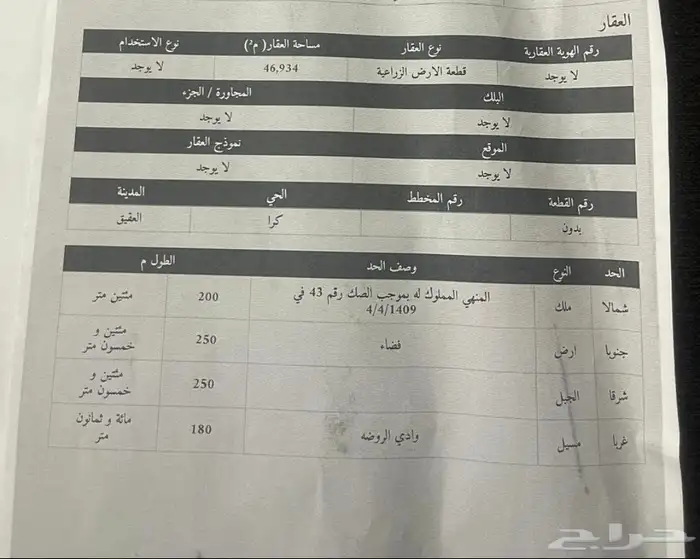 العقار
رقم الهوية العقارية نوع العقار مساحة العقار( م²) نوع الاستخدام
لا يوجد قطعة الارض الزراعية 46,934 لا يوجد
البلك المجاورة / الجزء
لا يوجد لا يوجد
الموقع نموذج العقار
لا يوجد لا يوجد
رقم القطعة رقم المخطط الحي المدينة
بدون كرا العقيق
الحد النوع وصف الحد الطول م
شمالا ملك المنهي المملوك له بموجب الصك رقم 43 في 200 مئتين متر
4/4/1409
جنوبا ارض فضاء 250 مئتين و
خمسون متر
شرقا الجبل 250 مئتين و
خمسون متر
غربا مسيل وادي الروضه 180 مائة و ثمانون
متر
حراج